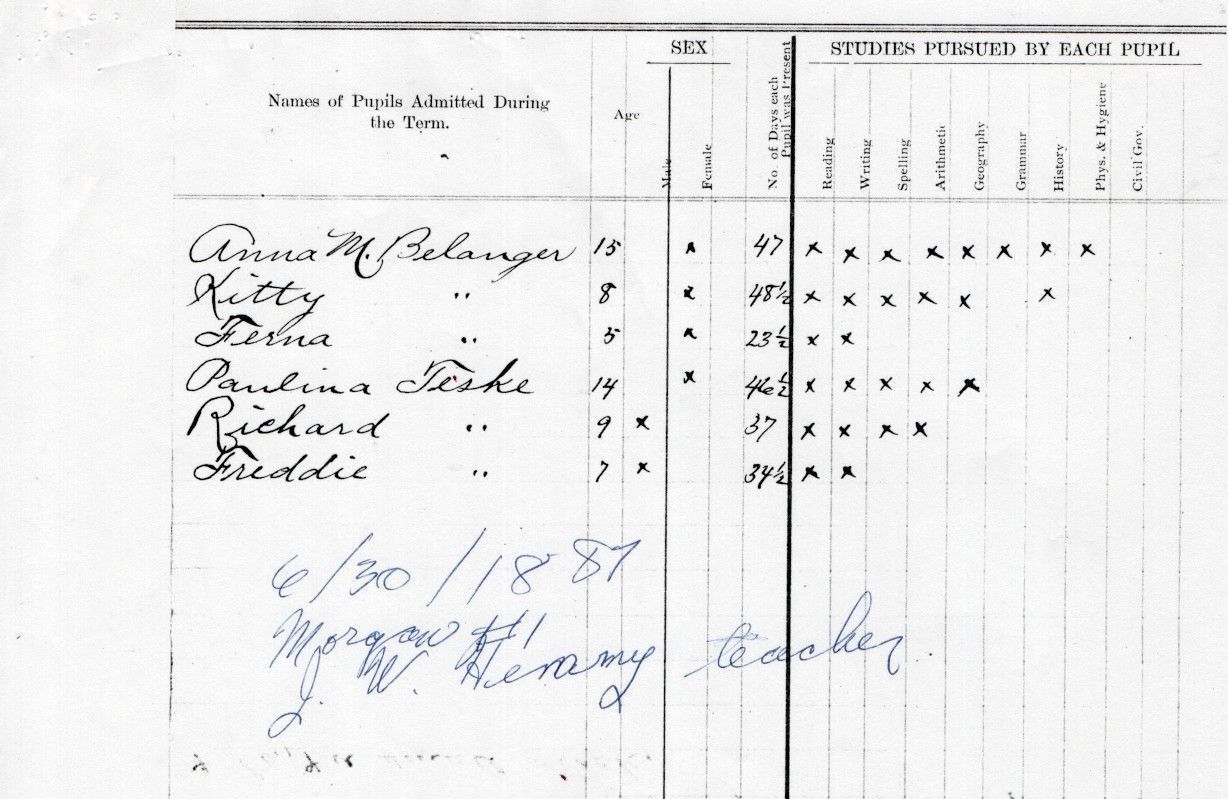 SEX STUDIES PURSUED BY EACH PUPIL
Names of Pupils Admitted During the Term. Age Male Female No. of Days each Pupil was Present Reading Writing Spelling Arithmetic Geography Grammar History Phys. & Hygiene Civil Gov.
Anna M. Belanger 15 x 47 x x x x x x x x
Kitty " 8 x 48½ x x x x x x
Ferna " 5 x 23½ x x
Paulina Teske 14 x 46½ x x x x x
Richard " 9 x 37 x x x x
Freddie " 7 x 34½ x x
6/30/1887
Morgan #1
J. W. teacher